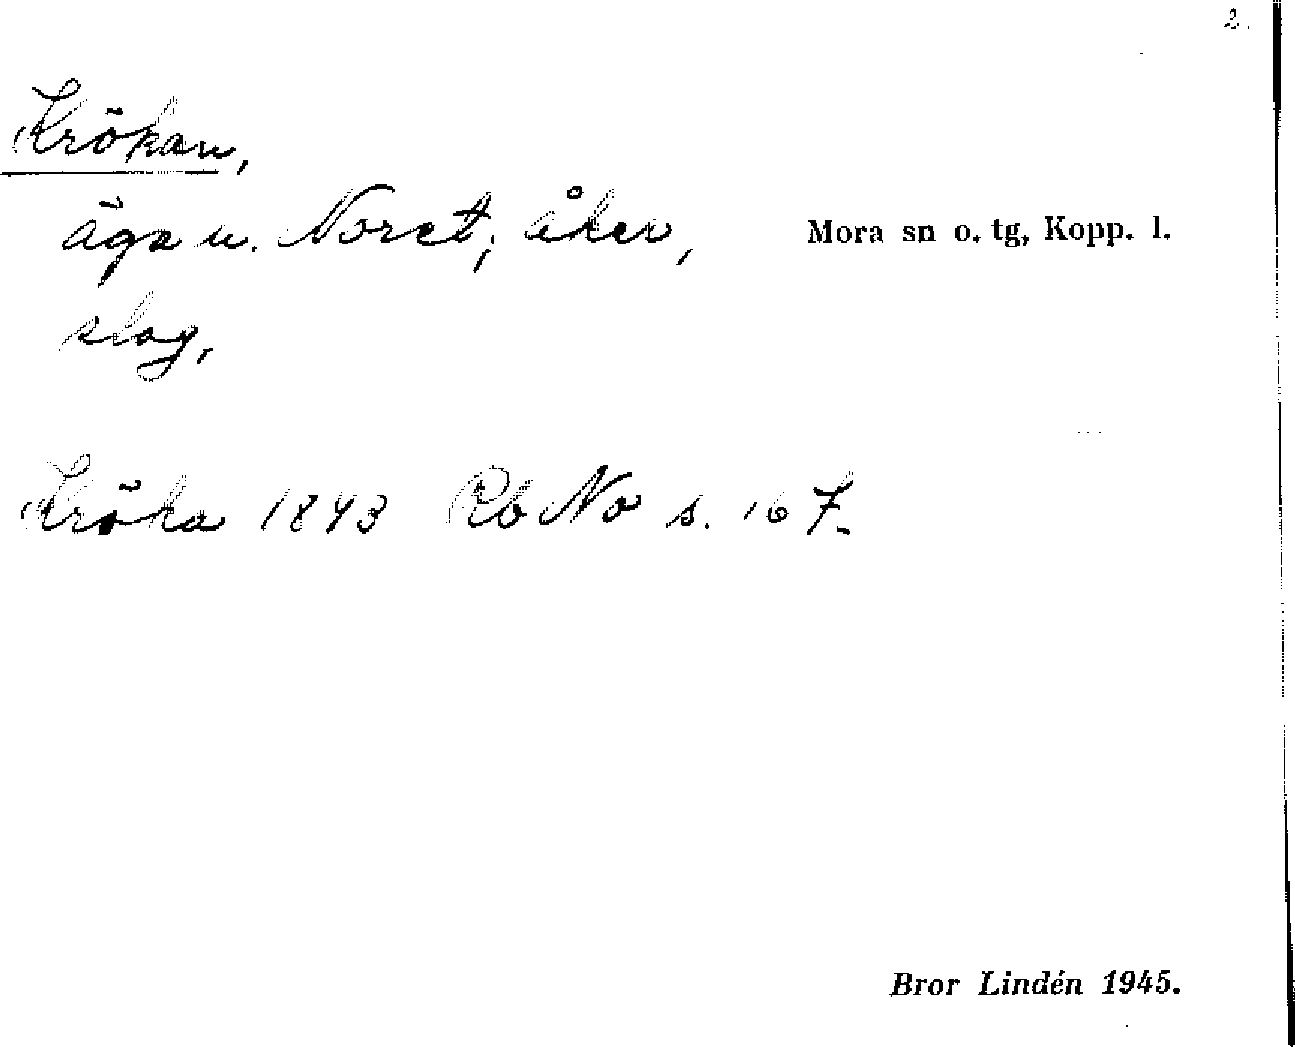 2.
Krökan,
äga u. Noret; åker,
Mora sn o. tg, Kopp. l.
slog,
Kröka 1843 Rb No s. 167.
Bror Lindén 1945.